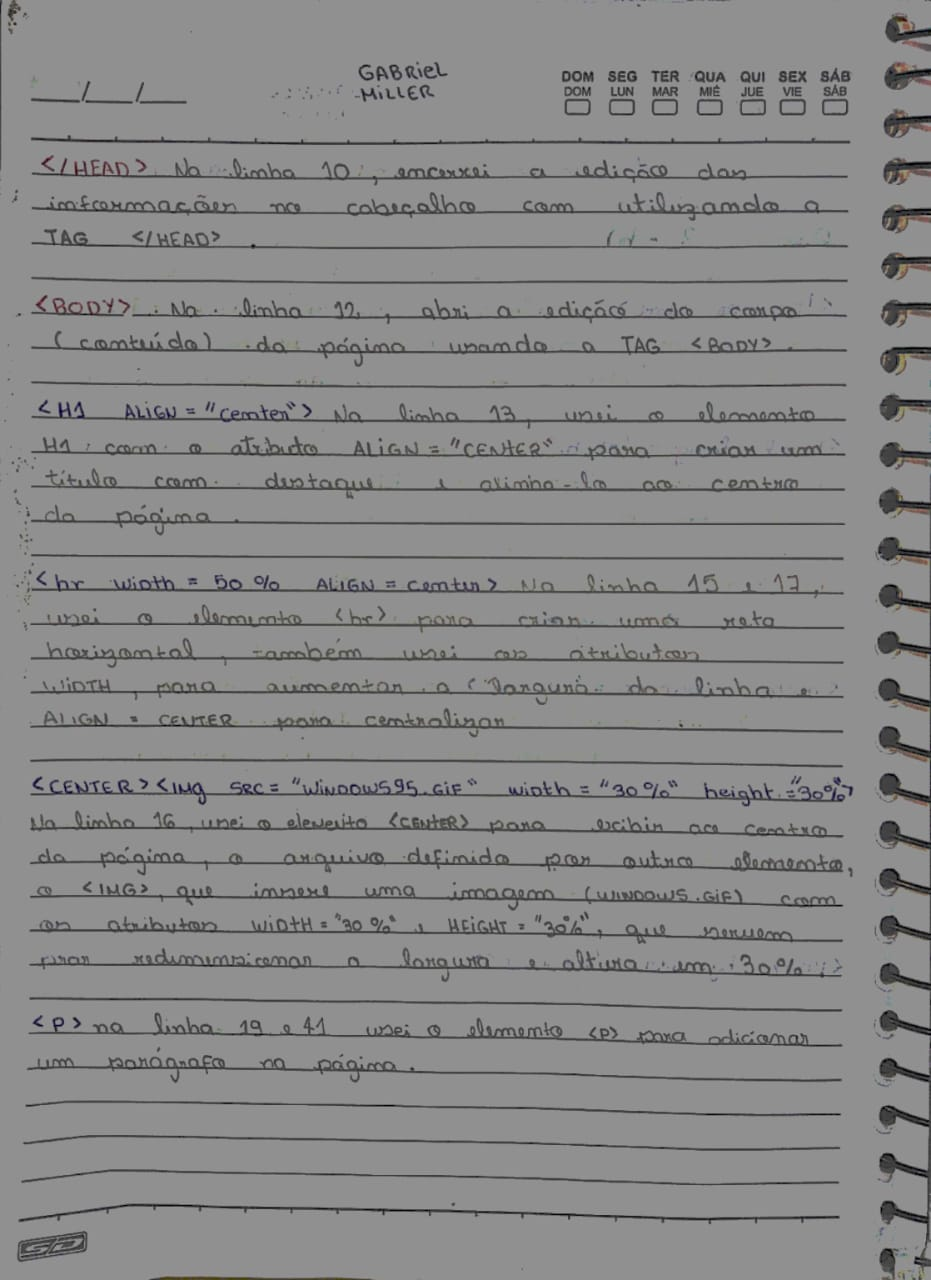 GABRIEL
MILLER
DOM SEG TER QUA QUI SEX SÁB
DOM LUN MAR MIÉ JUE VIE SÁB
</HEAD> Na linha 10, encerrei a edição das
informações no cabeçalho com utilizando a
TAG </HEAD>.
<BODY> Na linha 12, abri a edição do corpo
(conteúdo) da página usando a TAG <BODY>.
<H1 ALIGN = "center"> Na linha 13, usei o elemento
H1 com o atributo ALIGN = "CENTER" para criar um
título com destaque e alinha-lo ao centro
da página.
<hr WIDTH = 50 % ALIGN = center> Na linha 15 e 17,
usei o elemento <hr> para criar uma reta
horizontal, também usei os atributos
WIDTH, para aumentar a largura da linha e
ALIGN = CENTER para centralizar
<CENTER><IMG SRC = "WINDOWS95.GIF" width = "30%" height = "30%">
Na linha 16, usei o elemento <CENTER> para exibir ao centro
da página, o arquivo definido por outro elemento,
o <IMG>, que insere uma imagem (WINDOWS.GIF) com
os atributos WIDTH = "30%" e HEIGHT = "30%", que servem
pra redimensionar a largura e altura em 30%
<P> na linha 19 e 41 usei o elemento <P> para adicionar
um parágrafo na página.